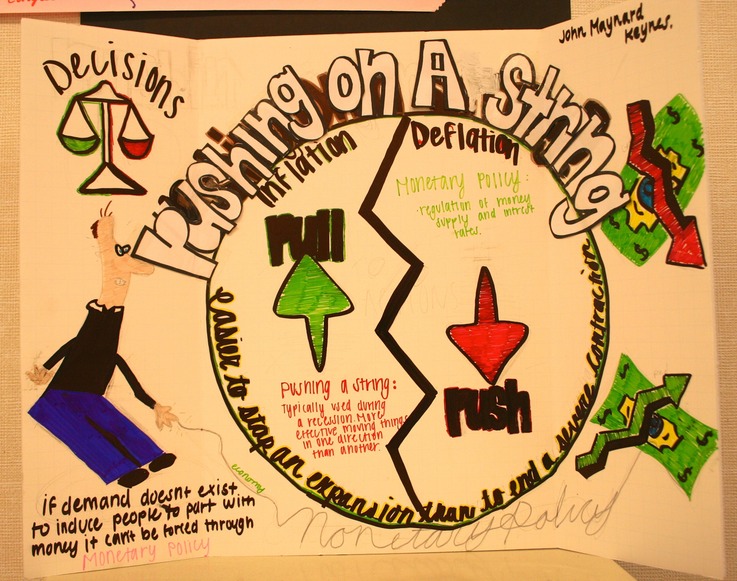 John Maynard
Keynes.
Decisions
Pushing on A String
Inflation
Deflation
Monetary Policy:
regulation of money
supply and intrest
rates.
Pull
Push
Pushing a string:
Typically used during
a recession. More
effective moving things
in one direction
than another.
easier to stop an expansion than to end a severe contraction
economy
Monetary Policy
if demand doesnt exist
to induce people to part with
money it cant be forced through
Monetary Policy